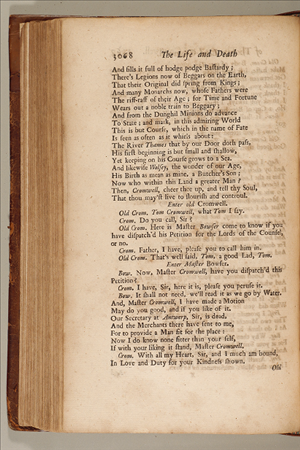 3068 The Life and Death
And fills it full of hodge podge Bastardy;
There's Legions now of Beggars on the Earth,
That their Original did spring from Kings;
And many Monarchs now, whose Fathers were
The riff-raff of their Age; for Time and Fortune
Wears out a noble train to Beggary;
And from the Dunghil Minions do advance
To State; and mark, in this admiring World
This is but Course, which in the name of Fate
Is seen as often as it whirls about:
The River Thames that by our Door doth pass,
His first beginning is but small and shallow,
Yet keeping on his Course grows to a Sea.
And likewise Wolsey, the wonder of our Age,
His Birth as mean as mine, a Butcher's Son;
Now who within this Land a greater Man?
Then, Cromwell, cheer thee up, and tell thy Soul,
That thou may'st live to flourish and controul.
Enter old Cromwell.
Old Crom. Tom Cromwell, what Tom I say.
Crom. Do you call, Sir?
Old Crom. Here is Master Bowser come to know if you
have dispatch'd his Petition for the Lords of the Counsel,
or no.
Crom. Father, I have, please you to call him in.
Old Crom. That's well said, Tom, a good Lad, Tom.
Enter Master Bowser.
Bow. Now, Master Cromwell, have you dispatch'd this
Petition?
Crom. I have, Sir, here it is, please you peruse it.
Bow. It shall not need, we'll read it as we go by Water.
And, Master Cromwell, I have made a Motion
May do you good, and if you like of it.
Our Secretary at Antwerp, Sir, is dead,
And the Merchants there have sent to me,
For to provide a Man fit for the place:
Now I do know none fitter than your self,
If with your liking it stand, Master Cromwell.
Crom. With all my Heart, Sir, and I much am bound,
In Love and Duty for your Kindness shown.
Old